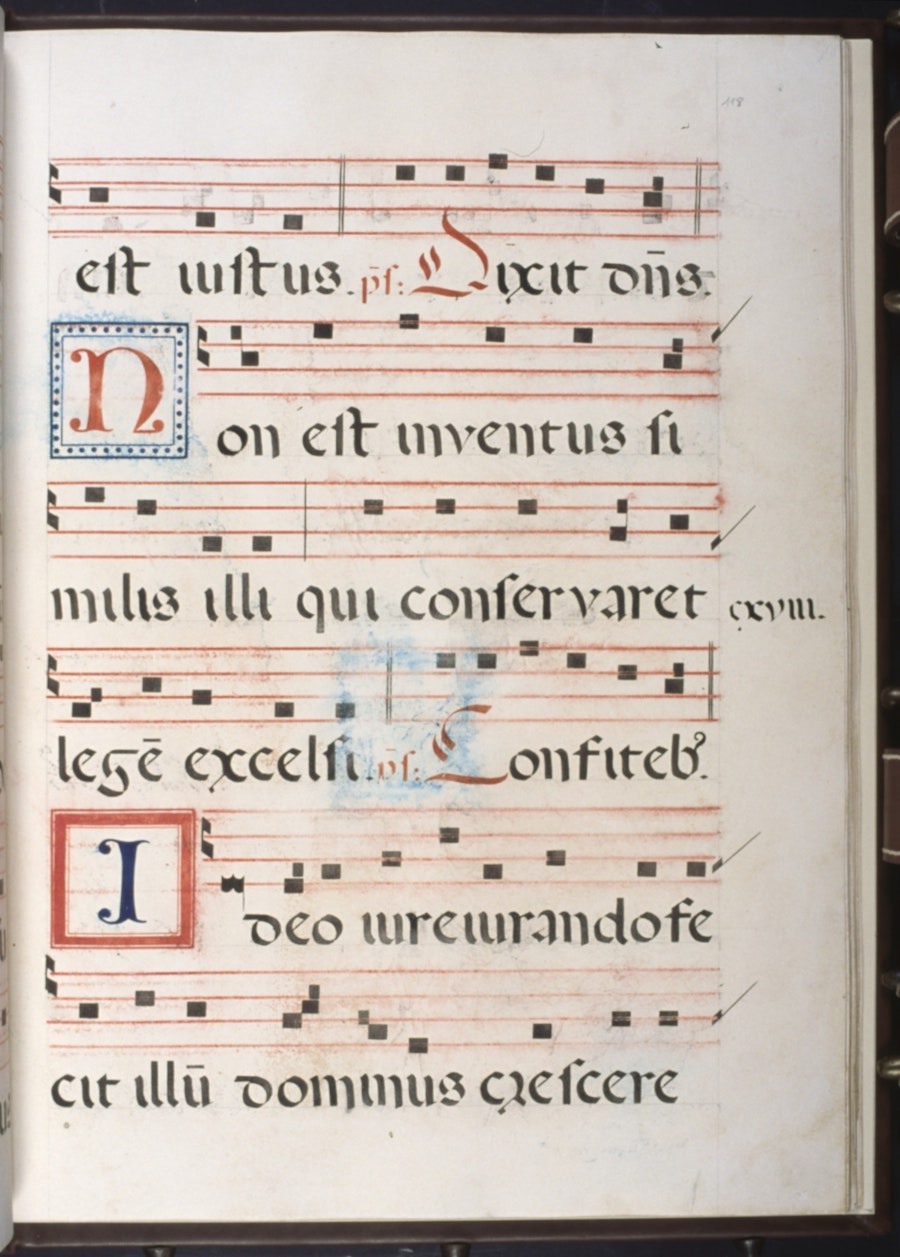 118
est iustus. ps̄: Dixit dn̄s.
Non est inventus si
milis illi qui conservaret cxviii.
legē excelsi. ps̄: Confiteb.
Ideo iureiurando fe
cit illū dominus crescere